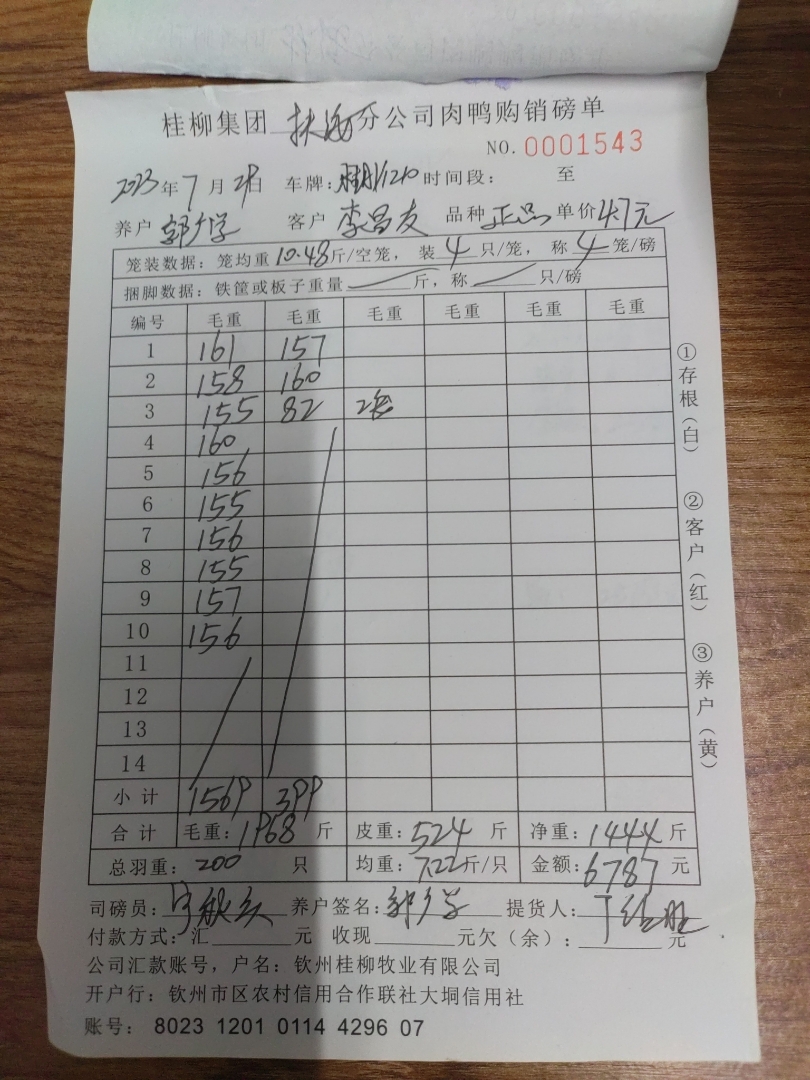 桂柳集团 扶海 分公司肉鸭购销磅单
NO. 0001543
2023年7月28日 车牌: 1210 时间段: 至
养户 郭学 客户 李昌友 品种 正品 单价 4.7元
笼装数据: 笼均重 10.48 斤/空笼, 装 4 只/笼, 称 4 笼/磅
捆脚数据: 铁筐或板子重量 斤, 称 只/磅
编号 毛重 毛重 毛重 毛重 毛重 毛重
1 161 157
2 158 160
3 155 82 2笼
4 160
5 156
6 155
7 156
8 155
9 157
10 156
11
12
13
14
小计 1569 399
合计 毛重: 1968 斤 皮重: 524 斤 净重: 1444 斤
总羽重: 200 只 均重: 7.22 斤/只 金额: 6787 元
司磅员: 养户签名: 郭学 提货人:
付款方式: 汇 元 收现 元欠(余): 元
公司汇款账号, 户名: 钦州桂柳牧业有限公司
开户行: 钦州市区农村信用合作联社大垌信用社
账号: 8023 1201 0114 4296 07
①存根(白)
②客户(红)
③养户(黄)